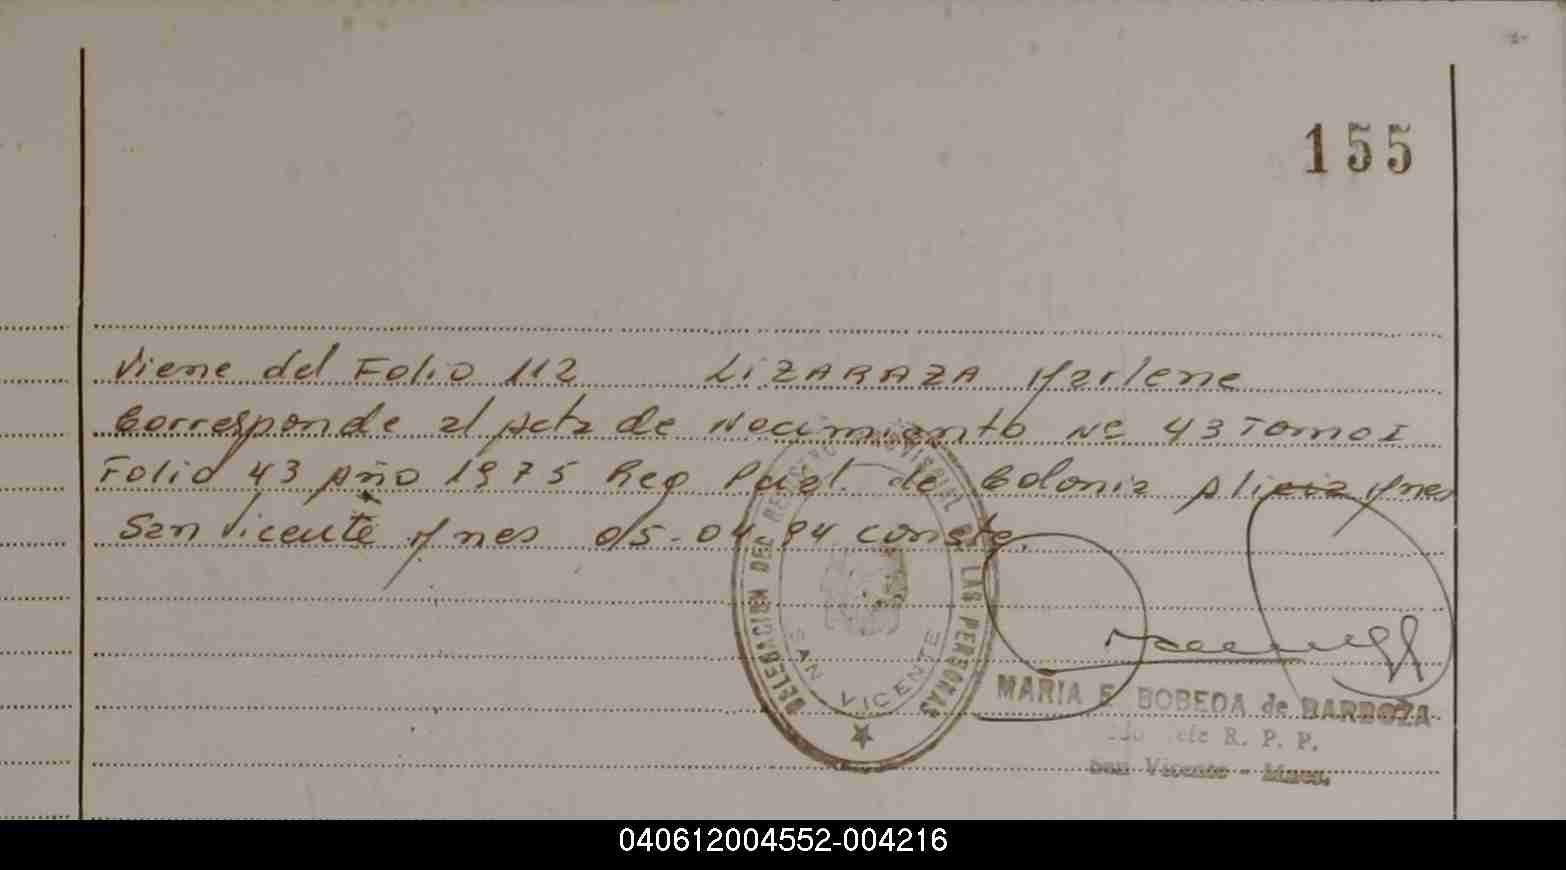 155
Viene del Folio 112 LIZARAZA Marlene
Corresponde al Acta de Nacimiento Nº 43 Tomo I
Folio 43 Año 1975 Reg Pcial. de Colonia Alicia Mnes
San Vicente Mnes 05-04-94 conste.
DELEGACION DEL REGISTRO PROVINCIAL DE LAS PERSONAS
SAN VICENTE
MARIA E. BOBEDA de BARBOZA
R. P. P.
San Vicente - Mnes.
040612004552-004216